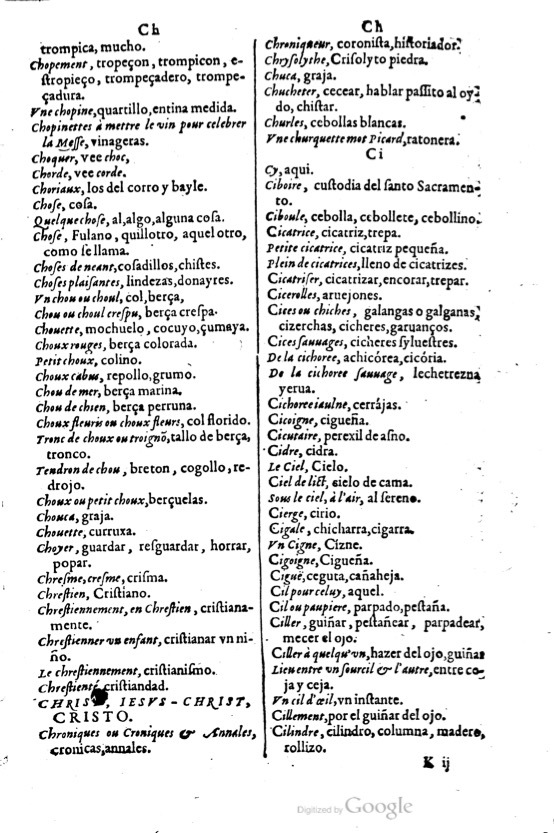 Ch
trompica, mucho.
Chopement, tropeçon, trompicon, e-
ſtropieço, trompeçadero, trompe-
çadura.
Vne chopine, quartillo, entina medida.
Chopinettes à mettre le vin pour celebrer
la Meſſe, vinageras.
Choquer, vee choc,
Chorde, vee corde.
Choriaux, los del corro y bayle.
Choſe, coſa.
Quelque choſe, al, algo, alguna coſa.
Choſe, Fulano, quillotro, aquel otro,
como ſe llama.
Choſes de neant, coſadillos, chiſtes.
Choſes plaiſantes, lindezas, donayres.
Vn chou ou choul, col, berça,
Chou ou choul creſpu, berça creſpa.
Chouette, mochuelo, cocuyo, çumaya.
Choux rouges, berça colorada.
Petit choux, colino.
Choux cabus, repollo, grumo.
Chou de mer, berça marina.
Chou de chien, berça perruna.
Choux fleuris ou choux fleurs, col florido.
Tronc de choux ou troignõ, tallo de berça,
tronco.
Tendron de chou, breton, cogollo, re-
drojo.
Choux ou petit choux, berçuelas.
Chouca, graja.
Chouette, curruxa.
Choyer, guardar, reſguardar, horrar,
popar.
Chreſme, creſme, criſma.
Chreſtien, Criſtiano.
Chreſtiennement, en Chreſtien, criſtiana-
mente.
Chreſtienner vn enfant, criſtianar vn ni-
ño.
Le chreſtiennement, criſtianiſmo.
Chreſtienté, criſtiandad.
CHRIST, IESVS-CHRIST,
CRISTO.
Chroniques ou Croniques & Annales,
cronicas, annales.
Ch
Chroniqueur, coroniſta, hiſtoriador.
Chryſolythe, Criſolyto piedra.
Chuca, graja.
Chucheter, cecear, hablar paſſito al oy-
do, chiſtar.
Churles, cebollas blancas.
Vne churquette mot Picard, ratonera.
Ci
Cy, aqui.
Ciboire, cuſtodia del ſanto Sacramen-
to.
Ciboule, cebolla, cebollete, cebollino.
Cicatrice, cicatriz, trepa.
Petite cicatrice, cicatriz pequeña.
Plein de cicatrices, lleno de cicatrizes.
Cicatriſer, cicatrizar, encorar, trepar.
Cicerolles, aruejones.
Cices ou chiches, galangas o galganas,
cizerchas, cicheres, garuanços.
Cices ſauuages, cicheres ſylueſtres.
De la cichoree, achicórea, cicória.
De la cichoree ſauuage, lechetrezna
yerua.
Cichoree iaulne, cerrájas.
Cicoigne, cigueña.
Cicutaire, perexil de aſno.
Cidre, cidra.
Le Ciel, Cielo.
Ciel de lict, cielo de cama.
Sous le ciel, à l'air, al ſereno.
Cierge, cirio.
Cigale, chicharra, cigarra.
Vn Cigne, Cizne.
Cigoigne, Cigueña.
Cigue, ceguta, cañaheja.
Cil pour celuy, aquel.
Cil ou paupiere, parpado, peſtaña.
Ciller, guiñar, peſtañear, parpadear,
mecer el ojo.
Ciller à quelqu'vn, hazer del ojo, guiñar
Lieu entre vn ſourcil & l'autre, entre ce-
ja y ceja.
Vn cil d'œil, vn inſtante.
Cillement, por el guiñar del ojo.
Cilindre, cilindro, columna, madero,
rollizo.
K ij
Digitized by Google